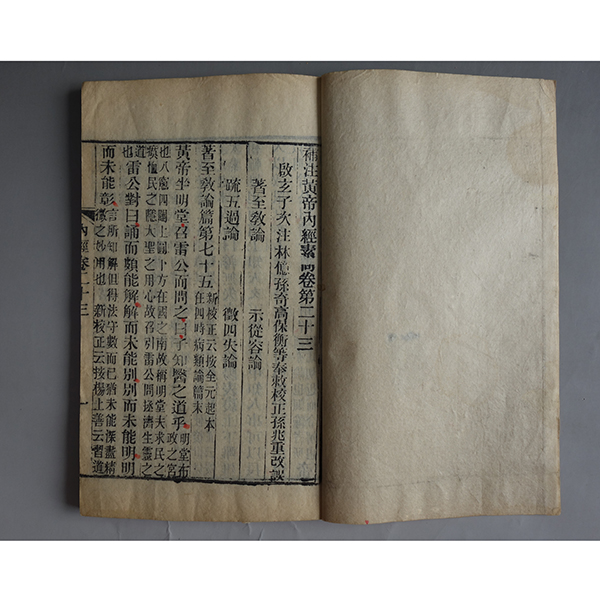 補注黃帝內經素問卷第二十三
啟玄子次注林億孫奇高保衡等奉敕校正孫兆重改誤
著至教論 示從容論
疏五過論 徵四失論
著至教論篇第七十五 新校正云按全元起本在四時病類論篇末
黃帝坐明堂召雷公而問之曰子知醫之道乎 明堂布政之宮
也八窻四闥上圓下方在國之南故稱明堂夫求民之
瘼恤民之隱大聖之用心故召引雷公問拯濟生靈之
道也雷公對曰誦而頗能解解而未能別別而未能明明
而未能彰 言所知解但得法守數而已猶未能深盡精微之妙用也 新校正云按楊上善云習道
內經卷二十三 一